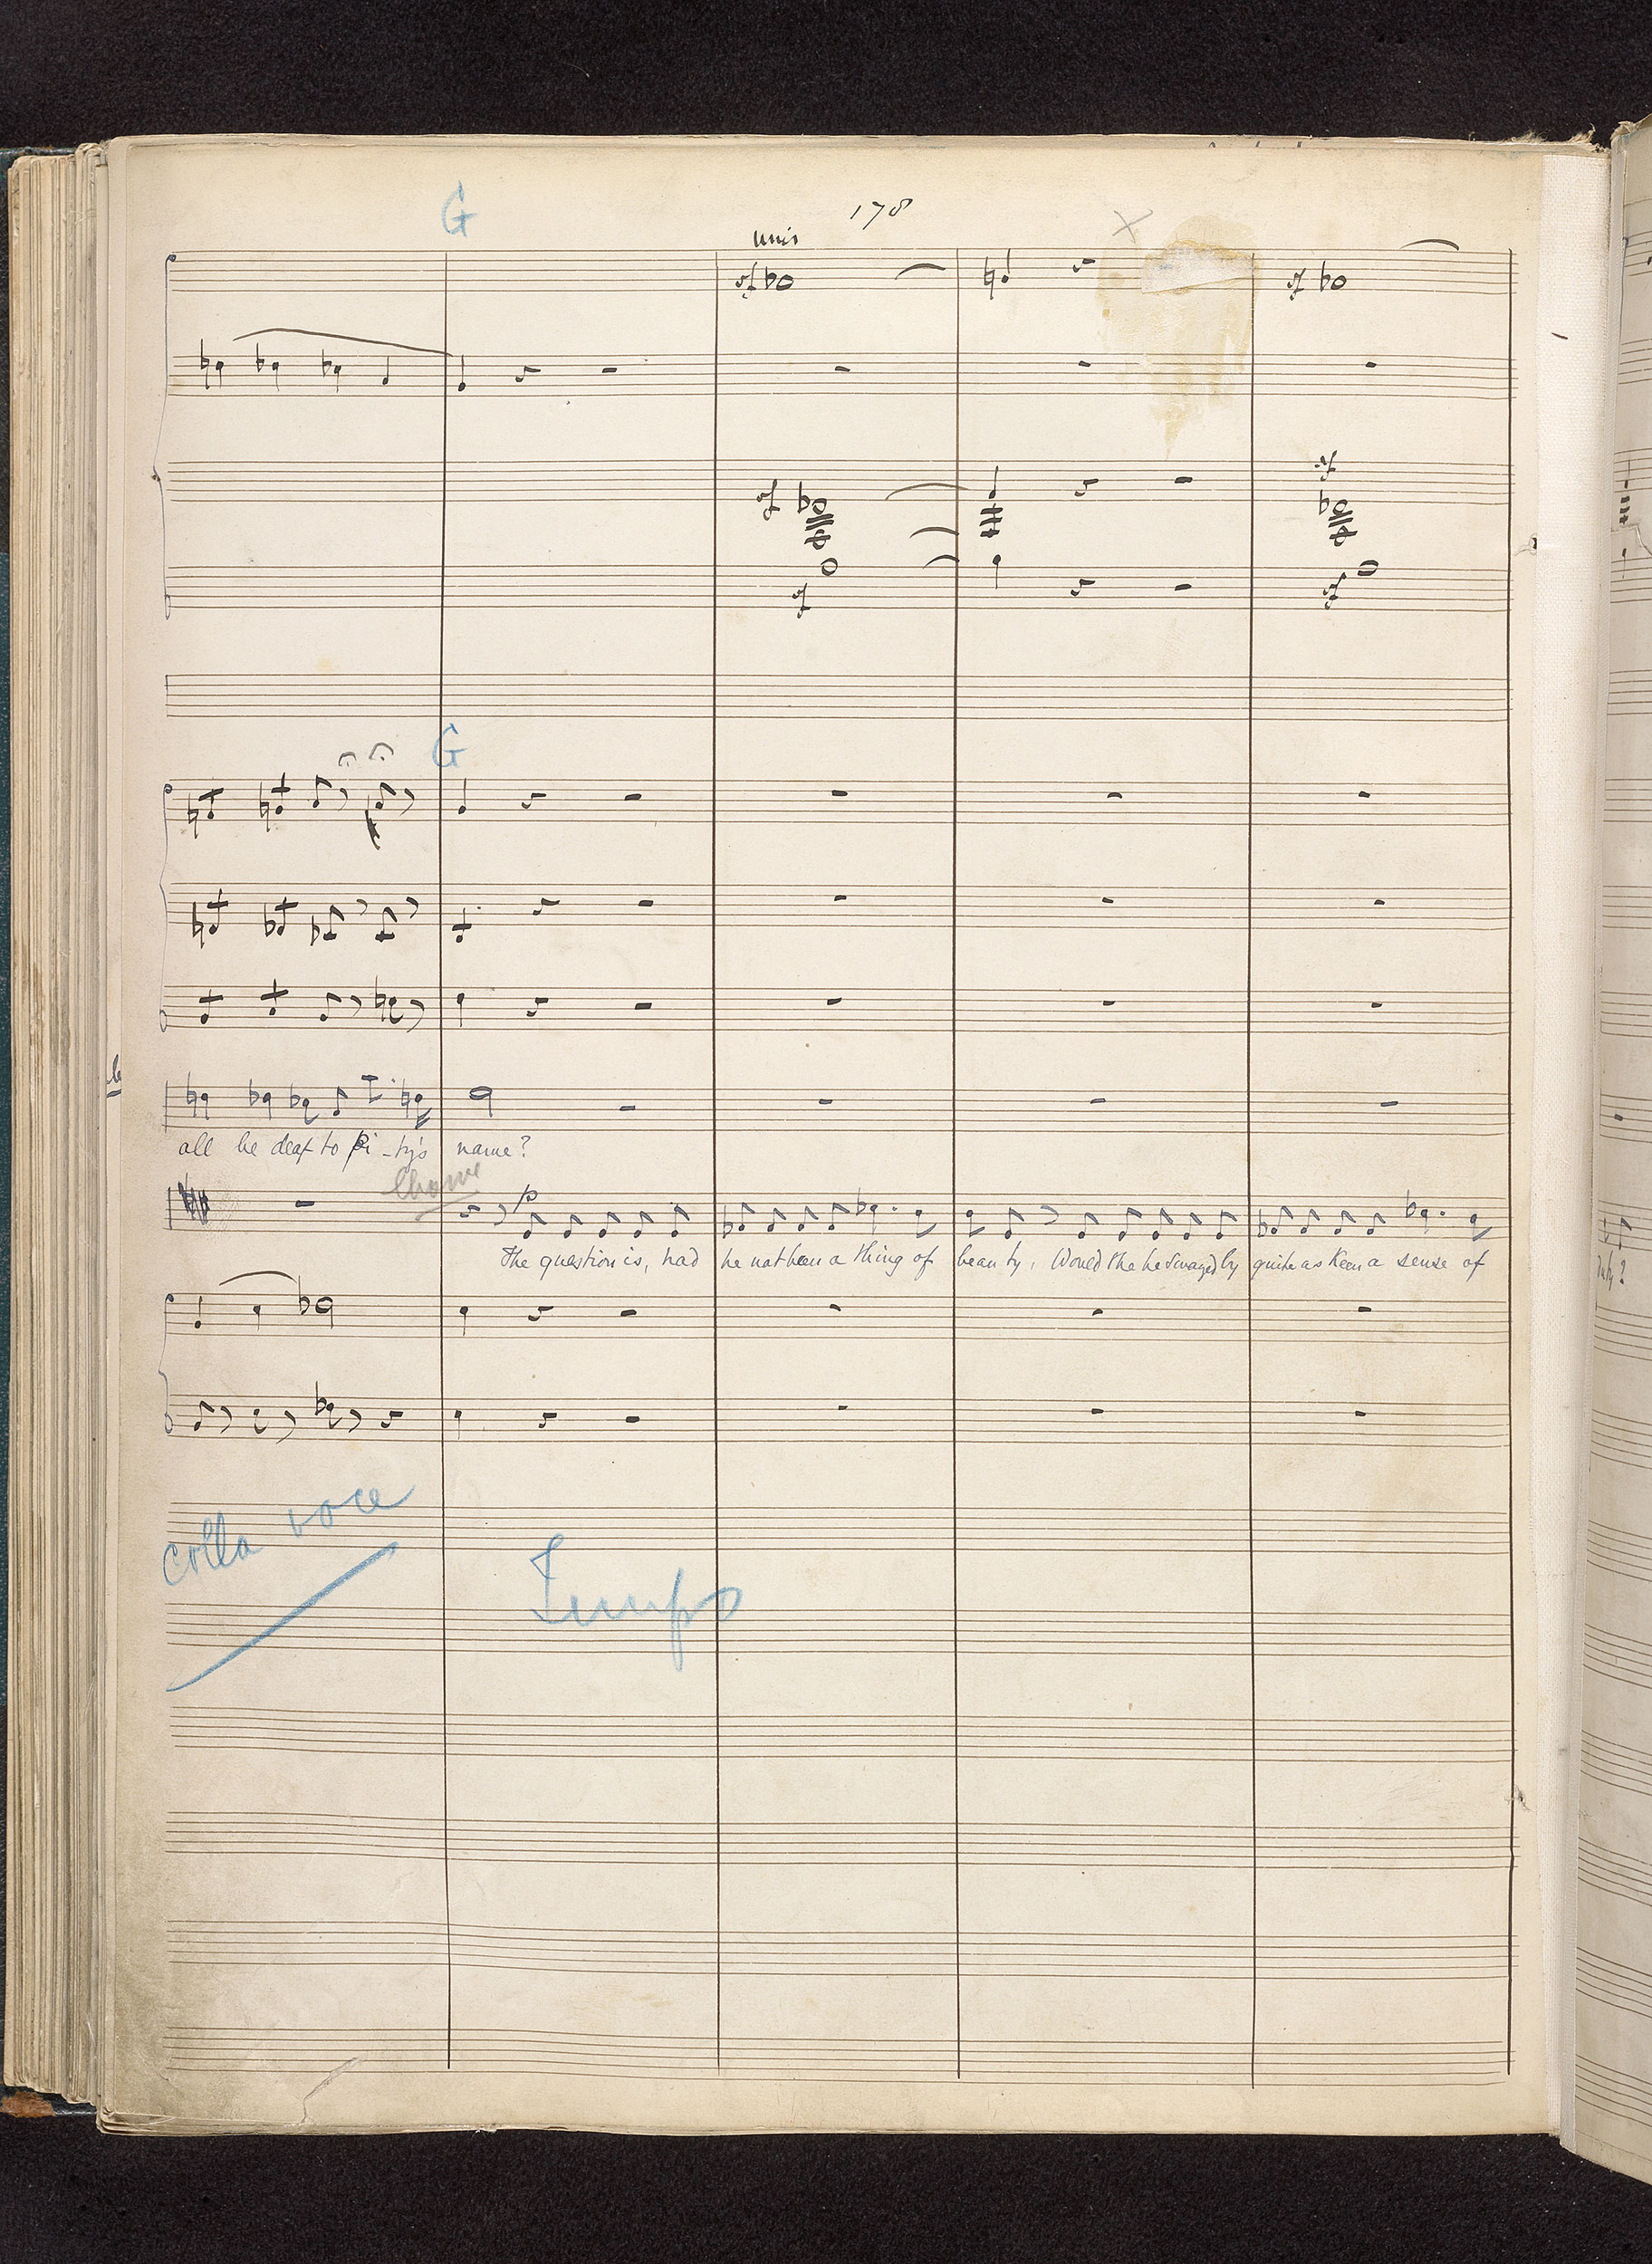 G
178
unis
G
all be deaf to Pi - ty's name?
Chorus
p
The question is, had he not been a thing of beau ty, Would she be swayed by quite as keen a sense of
duty?
colla voce
Tempo